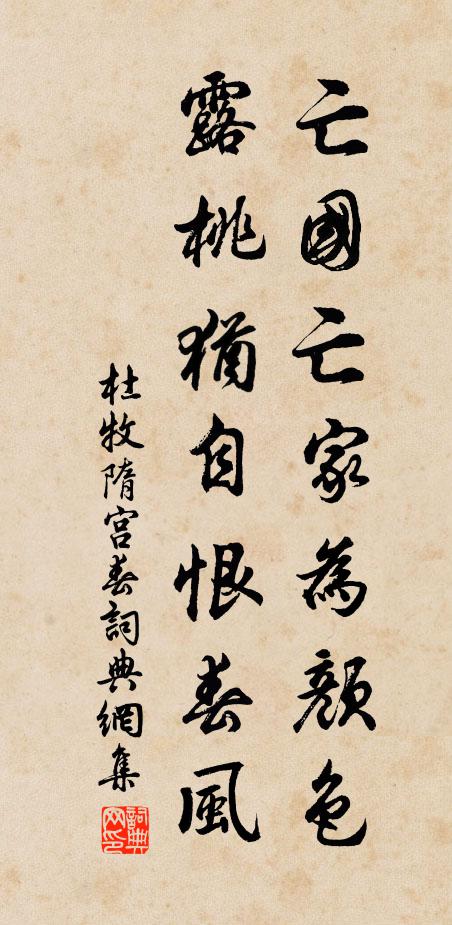 亡國亡家為顏色
露桃猶自恨春風
杜牧隋宮春詞典網集
詞典網印